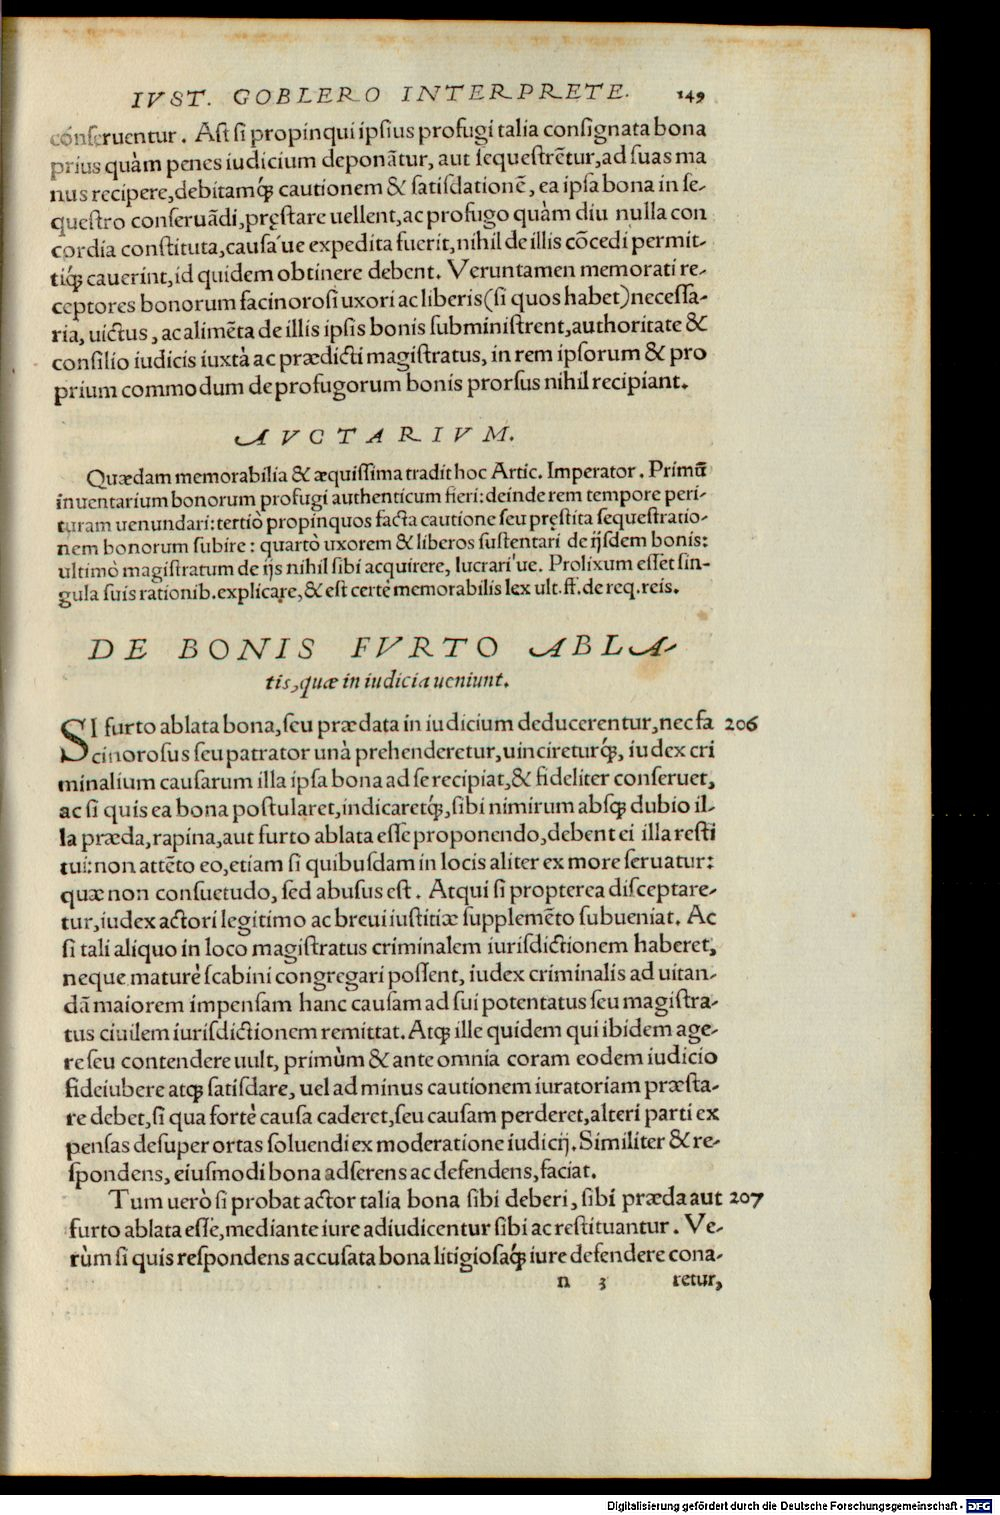 IVST. GOBLERO INTERPRETE. 149
cóseruentur. Ast si propinqui ipsius profugi talia consignata bona
prius quàm penes iudicium deponãtur, aut sequestrẽtur, ad suas ma
nus recipere, debitamq́; cautionem & satisdationẽ, ea ipsa bona in se-
questro conseruãdi, pręstare uellent, ac profugo quàm diu nulla con
cordia constituta, causa'ue expedita fuerit, nihil de illis cõcedi permit-
tiq́; cauerint, id quidem obtinere debent. Veruntamen memorati re-
ceptores bonorum facinorosi uxori ac liberis (si quos habet) necessa-
ria, uictus, ac alimẽta de illis ipsis bonis subministrent, authoritate &
consilio iudicis iuxtà ac prædicti magistratus, in rem ipsorum & pro
prium commodum de profugorum bonis prorsus nihil recipiant.
AVCTARIVM.
Quædam memorabilia & æquissima tradit hoc Artic. Imperator. Primũ
inuentarium bonorum profugi authenticum fieri: deinde rem tempore peri-
turam uenundari: tertiò propinquos facta cautione seu pręstita sequestratio-
nem bonorum subire: quartò uxorem & liberos sustentari de ijsdem bonis:
ultimò magistratum de ijs nihil sibi acquirere, lucrari'ue. Prolixum esset sin-
gula suis rationib. explicare, & est certè memorabilis lex ult. ff. de req. reis.
DE BONIS FVRTO ABLA-
tis, quæ in iudicia ueniunt.
SI furto ablata bona, seu præda ta in iudicium deducerentur, nec fa 206
cinorosus seu patrator unà prehenderetur, uincireturq́;, iudex cri
minalium causarum illa ipsa bona ad se recipiat, & fideliter conseruet,
ac si quis ea bona postularet, indicaretq́;, sibi nimirum absq; dubio il-
la præda, rapina, aut furto ablata esse proponendo, debent ei illa resti
tui: non attẽto eo, etiam si quibusdam in locis aliter ex more seruatur:
quæ non consuetudo, sed abusus est. Atqui si propterea disceptare-
tur, iudex actori legitimo ac breui iustitiæ supplemẽto subueniat. Ac
si tali aliquo in loco magistratus criminalem iurisdictionem haberet,
neque maturè scabini congregari possent, iudex criminalis ad uitan-
dã maiorem impensam hanc causam ad sui potentatus seu magistra-
tus ciuilem iurisdictionem remittat. Atq; ille quidem qui ibidem age-
re seu contendere uult, primùm & ante omnia coram eodem iudicio
fideiubere atq; satisdare, uel ad minus cautionem iuratoriam præsta-
re debet, si qua fortè causa caderet, seu causam perderet, alteri parti ex
pensas desuper ortas soluendi ex moderatione iudicij. Similiter & re-
spondens, eiusmodi bona adserens ac defendens, faciat.
Tum uerò si probat actor talia bona sibi deberi, sibi præda aut 207
furto ablata esse, mediante iure adiudicentur sibi ac restituantur. Ve-
rùm si quis respondens accusata bona litigiosaq́; iure defendere cona-
n 3 retur,
Digitalisierung gefördert durch die Deutsche Forschungsgemeinschaft - DFG